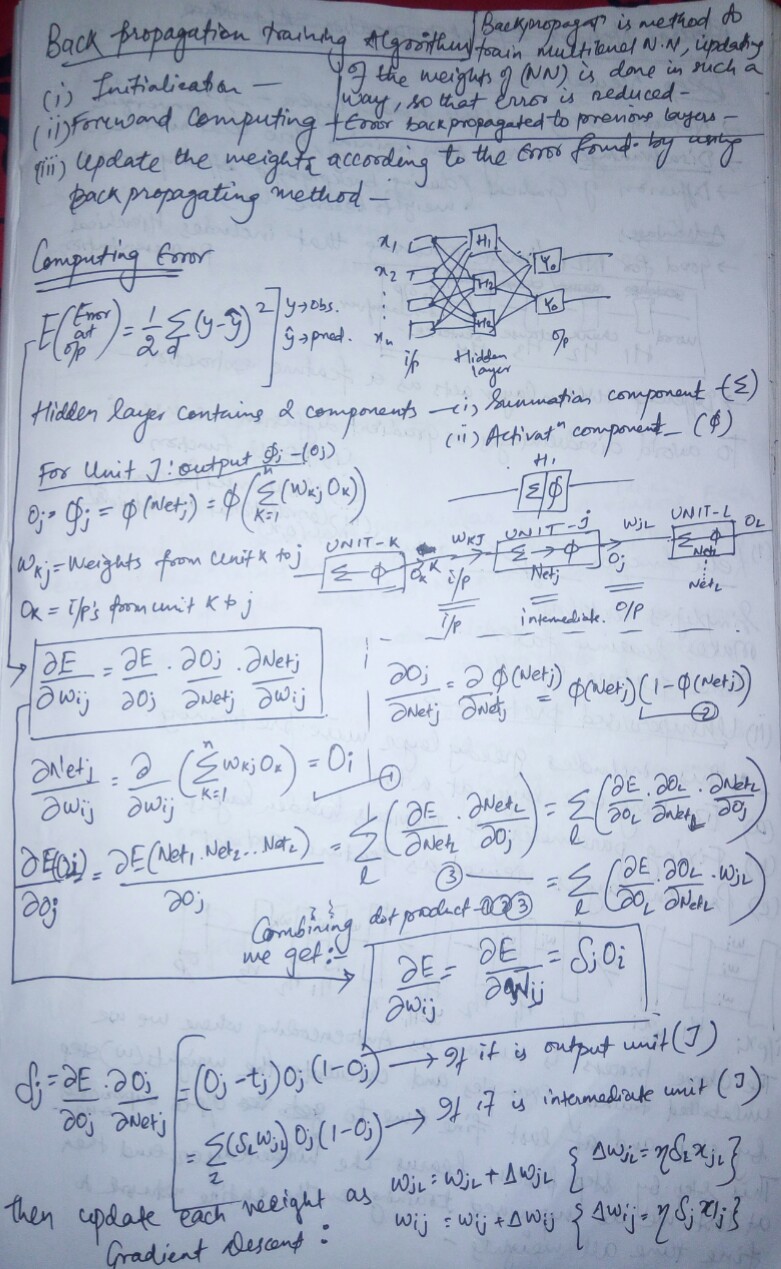 Back Propagation training Algorithm
Backpropagatn is method to
train multilevel N.N, updating
of the weights of (NN) is done in such a
way, so that error is reduced -
Error back propagated to previous layers -
(i) Initialization -
(ii) Forward Computing -
(iii) Update the weights according to the error found. by using
Back propagating method -
Computing Error
E(Error at o/p) = 1/2 Σ_d (y-ŷ)² ] y→obs.
ŷ→pred.
x1 H1 Yo
x2 H2 Yo
⋮ H2
xn i/p Hidden layer o/p
Hidden layer contains 2 components - (i) Summation component - (Σ)
(ii) Activatⁿ component - (ϕ)
For Unit J: output ϕj - (Oj)
Oj = ϕj = ϕ(Netj) = ϕ(Σ_{K=1}^{n} (WKj OK))
H1
Σ|ϕ
WKj = Weights from Unit K to j
OK = i/p's from unit K to j
UNIT-K Σ ϕ OK WKJ i/p UNIT-j Σ → ϕ Netj WjL Oj UNIT-L Σ ϕ NetL OL
NetL
i/p intermediate. O/P
∂E/∂wij = ∂E/∂Oj . ∂Oj/∂Netj . ∂Netj/∂wij
∂Oj/∂Netj = ∂/∂Netj ϕ(Netj) = ϕ(Netj)(1-ϕ(Netj)) ②
∂Netj/∂wij = ∂/∂wij (Σ_{K=1}^{n} WKj OK) = Oi ①
∂E(Oj)/∂Oj = ∂E(Net1.Net2..NetL)/∂Oj = Σ_l (∂E/∂NetL . ∂NetL/∂Oj) = Σ_l (∂E/∂OL . ∂OL/∂NetL . ∂NetL/∂Oj)
③ = Σ_l (∂E/∂OL . ∂OL/∂NetL . WjL)
Combining dot product - ①②③
we get :-
∂E/∂wij = ∂E/∂Wij = δj Oi
δj = ∂E/∂Oj . ∂Oj/∂Netj = (Oj - tj) Oj (1-Oj) → If it is output unit (J)
= Σ_L (δL WjL) Oj (1-Oj) → If it is intermediate unit (J)
then update each weight as
Gradient Descent :
WjL = WjL + ΔWjL { ΔWjL = ηδL xjL}
wij = wij + Δwij { Δwij = ηδj xij}